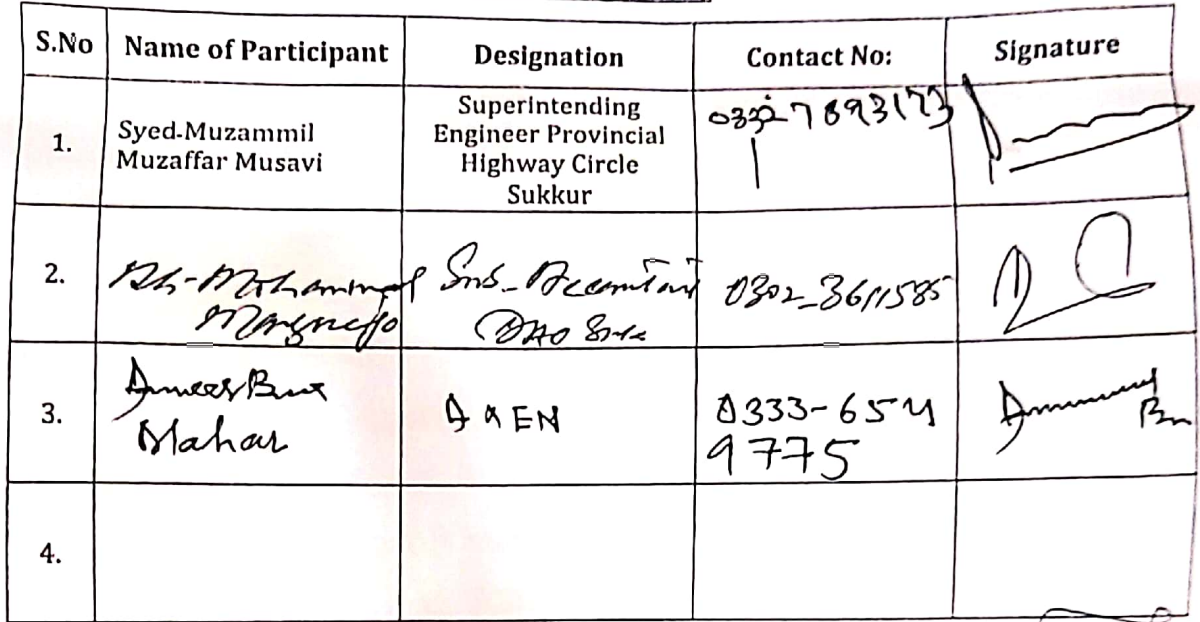 S.No Name of Participant Designation Contact No: Signature
1. Syed-Muzammil Muzaffar Musavi Superintending Engineer Provincial Highway Circle Sukkur 7893173
2. Mohammad Sub- 0302-3611585
3. Ameer Bux Mahar 0333-654 9775
4.